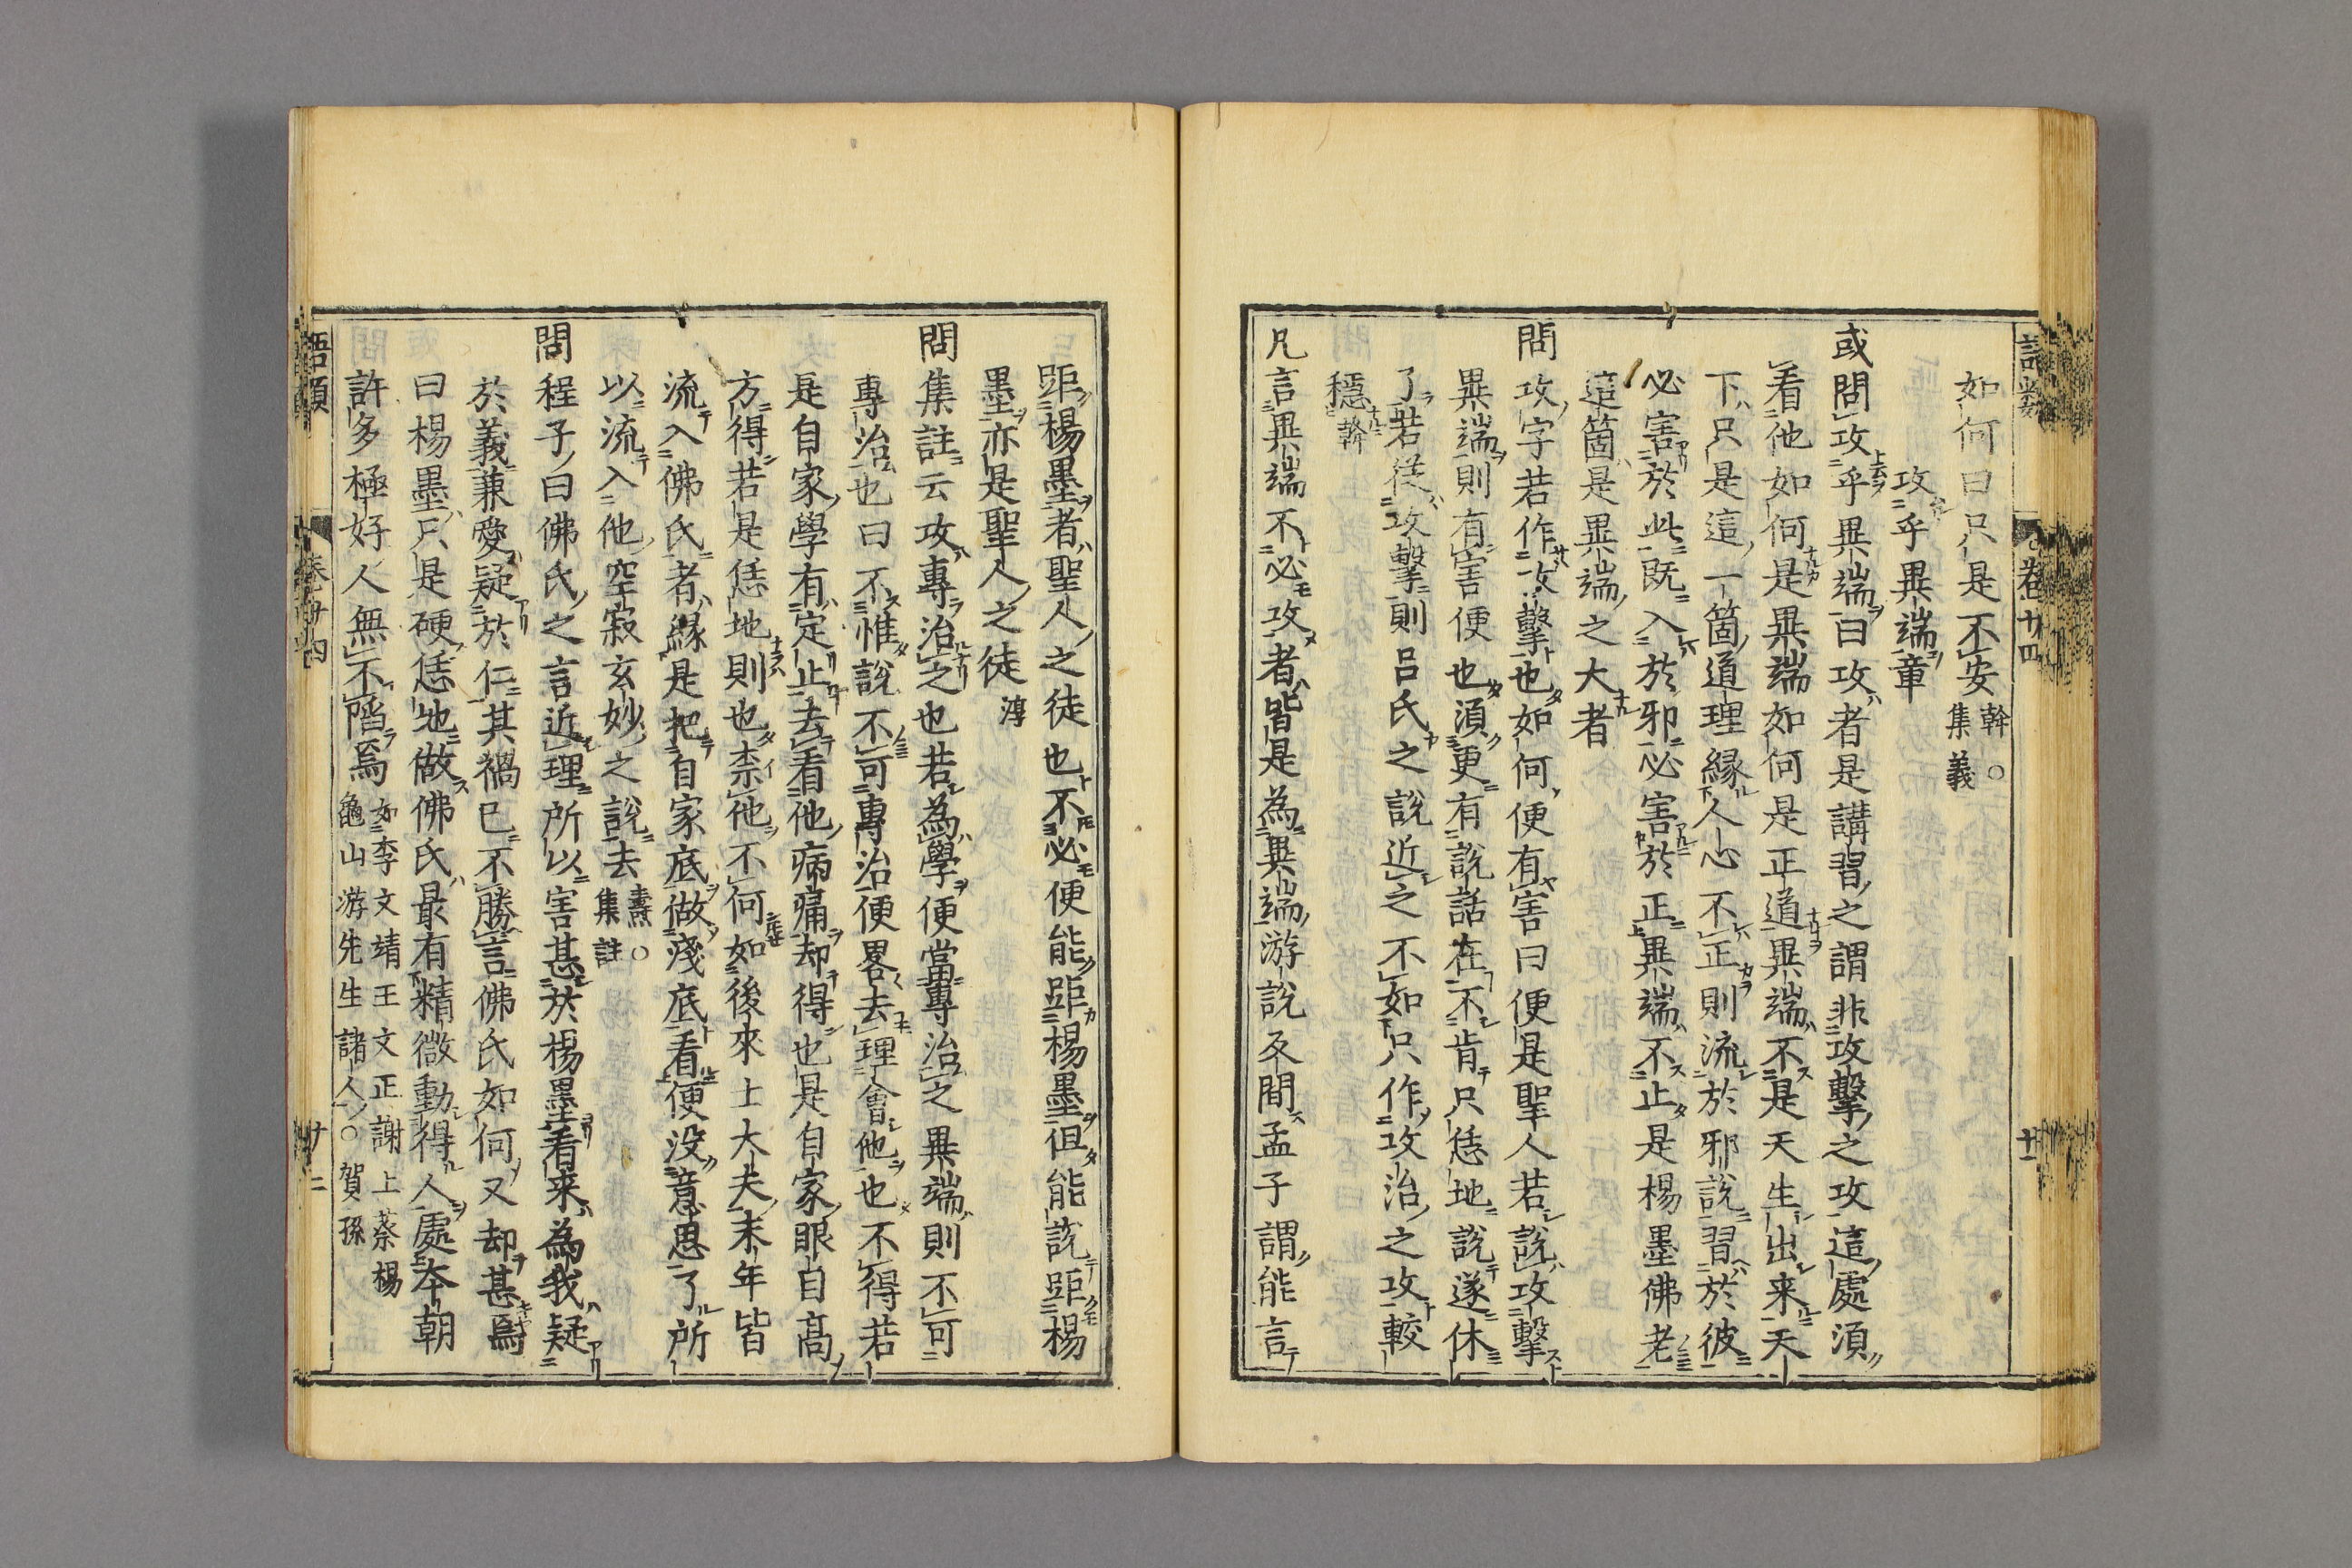 語類 卷廿四 十一
如何曰只是不安幹○集義
攻乎異端章
或問攻乎異端曰攻者是講習之謂非攻擊之攻這處須
看他如何是異端如何是正道異端不是天生出来天
下只是這一箇道理緣人心不正則流於邪說習於彼
必害於此既入於邪必害於正異端不止是楊墨佛老
這箇是異端之大者
問攻字若作攻擊也如何便有害曰便是聖人若說攻擊
異端則有害便也須更有說話在不肯只恁地說遂休
了若從攻擊則呂氏之說近之不如只作攻治之攻較
穩幹
凡言異端不必攻者皆是為異端游說反間孟子謂能言
距楊墨者聖人之徒也不必便能距楊墨但能說距楊
墨亦是聖人之徒淳
問集註云攻專治之也若為學便當專治之異端則不可
專治也曰不惟說不可專治便畧去理會他也不得若
是自家學有定止去看他病痛却得也是自家眼目高
方得若是恁地則也柰他不何如後來士大夫末年皆
流入佛氏者緣是把自家底做淺底看便没意思了所
以流入他空寂玄妙之說去燾○集註
問程子曰佛氏之言近理所以害甚於楊墨看来為我疑
於義兼愛疑於仁其禍已不勝言佛氏如何又却甚焉
曰楊墨只是硬恁地做佛氏最有精微動得人處本朝
許多極好人無不陷焉如李文靖王文正謝上蔡楊龜山游先生諸人○賀孫
語類 卷廿四 十二